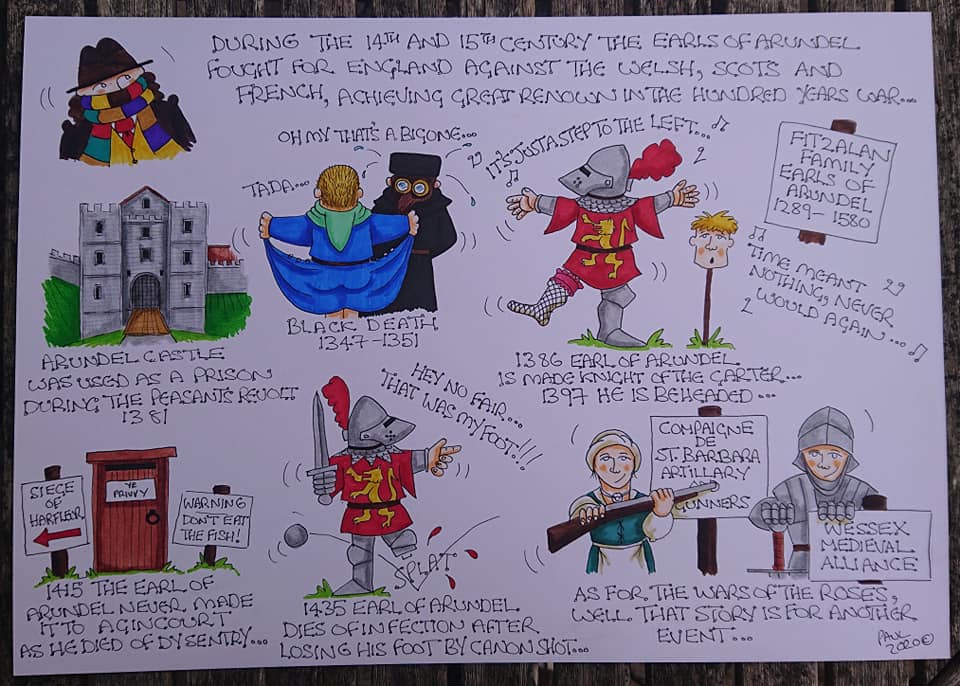 DURING THE 14TH AND 15TH CENTURY THE EARLS OF ARUNDEL
FOUGHT FOR ENGLAND AGAINST THE WELSH, SCOTS AND
FRENCH, ACHIEVING GREAT RENOWN IN THE HUNDRED YEARS WAR...
OH MY THAT'S A BIG ONE...
TADA...
BLACK DEATH
1347-1351
IT'S JUST A STEP TO THE LEFT...
FITZALAN
FAMILY
EARLS OF
ARUNDEL
1289-1580
TIME MEANT
NOTHING, NEVER
WOULD AGAIN...
ARUNDEL CASTLE
WAS USED AS A PRISON
DURING THE PEASANTS REVOLT
1381
1386 EARL OF ARUNDEL
IS MADE KNIGHT OF THE GARTER...
1397 HE IS BEHEADED...
SIEGE
OF
HARFLEUR
YE
PRIVVY
WARNING
DON'T EAT
THE FISH!
1415 THE EARL OF
ARUNDEL NEVER MADE
IT TO AGINCOURT
AS HE DIED OF DYSENTRY...
HEY NO FAIR...
THAT WAS MY FOOT!!!
SPLAT
1435 EARL OF ARUNDEL
DIES OF INFECTION AFTER
LOSING HIS FOOT BY CANON SHOT...
COMPAIGNE
DE
ST. BARBARA
ARTILLARY
GUNNERS
WESSEX
MEDIEVAL
ALLIANCE
AS FOR THE WARS OF THE ROSES,
WELL THAT STORY IS FOR ANOTHER
EVENT...
PAUL
2020©